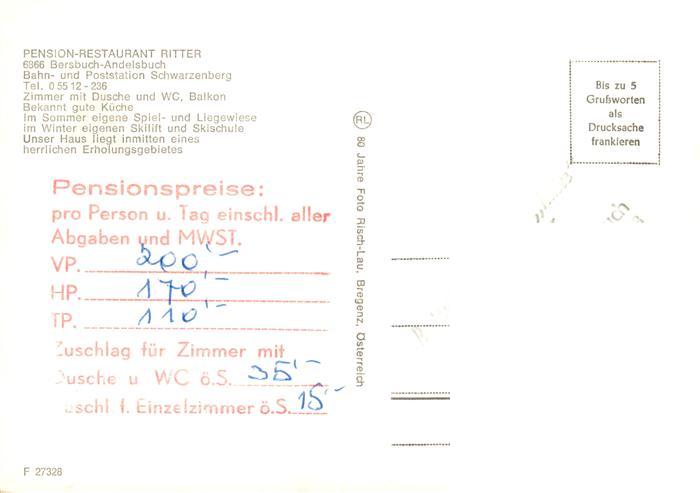 PENSION-RESTAURANT RITTER
6866 Bersbuch-Andelsbuch
Bahn- und Poststation Schwarzenberg
Tel. 0 55 12 - 236
Zimmer mit Dusche und WC, Balkon
Bekannt gute Küche
Im Sommer eigene Spiel- und Liegewiese
im Winter eigenen Skilift und Skischule
Unser Haus liegt inmitten eines
herrlichen Erholungsgebietes
Pensionspreise:
pro Person u. Tag einschl. aller
Abgaben und MWST.
VP. 200,-
HP. 170,-
TP. 110,-
Zuschlag für Zimmer mit
Dusche u WC ö.S. 35,-
uschl f. Einzelzimmer ö.S. 15,-
F 27328
RL 80 Jahre Foto Risch-Lau, Bregenz, Österreich
Bis zu 5
Grußworten
als
Drucksache
frankieren